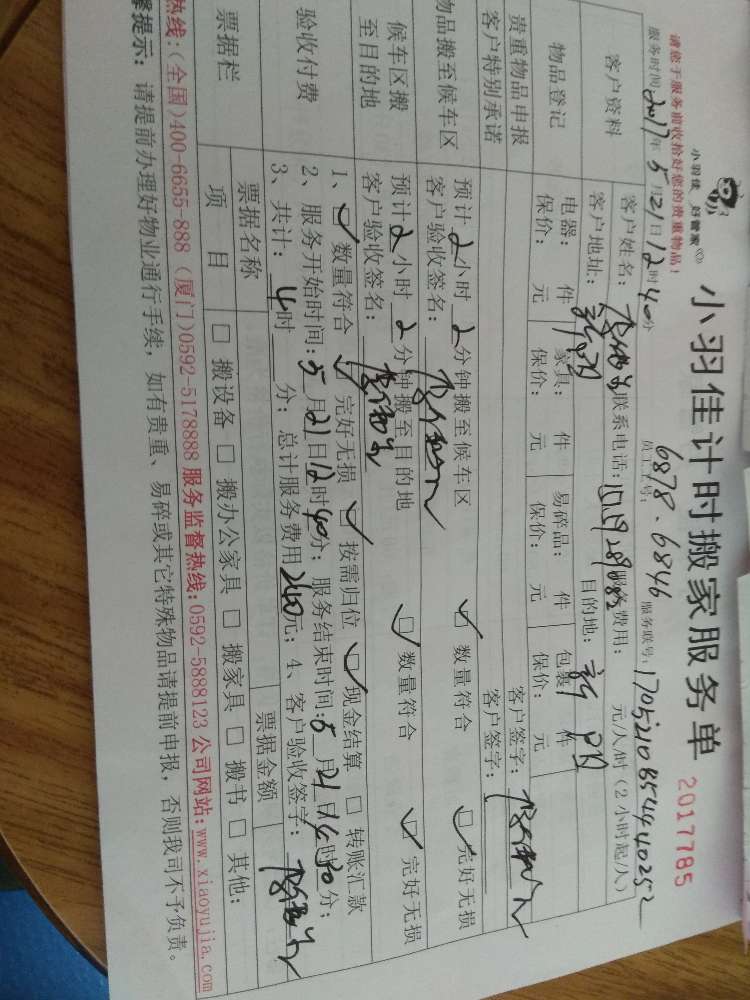 小羽佳 好管家
小羽佳计时搬家服务单
2017785
请您于服务前收拾好您的贵重物品！
员工工号：6878.6846
服务时间：2017年5月21日12时40分
服务联号：
客户资料
客户姓名：
联系电话：
服务费用：
元/人/时（2小时起/人）
客户地址：
目的地：
物品登记
电器： 件
家具： 件
易碎品： 件
包裹： 件
保价： 元
保价： 元
保价： 元
保价： 元
贵重物品申报
客户签字：
客户特别承诺
客户签字：
物品搬至候车区
预计2小时2分钟搬至候车区
数量符合
完好无损
客户验收签名：
候车区搬至目的地
预计2小时2分钟搬至目的地
数量符合
完好无损
客户验收签名：
验收付费
1、 数量符合 完好无损 按需归位 现金结算 转账汇款
2、服务开始时间：5月21日12时40分；服务结束时间：5月21日16时50分；
3、共计：4时 分；总计服务费用240元；4、客户验收签字：
票据栏
票据名称
票据金额
项 目
搬设备 搬办公家具 搬家具 搬书 其他：
热线：(全国)400-6655-888 (厦门)0592-5178888 服务监督热线：0592-5888123 公司网站：www.xiaoyujia.com
馨提示：请提前办理好物业通行手续，如有贵重、易碎或其它特殊物品请提前申报，否则我司不予负责。